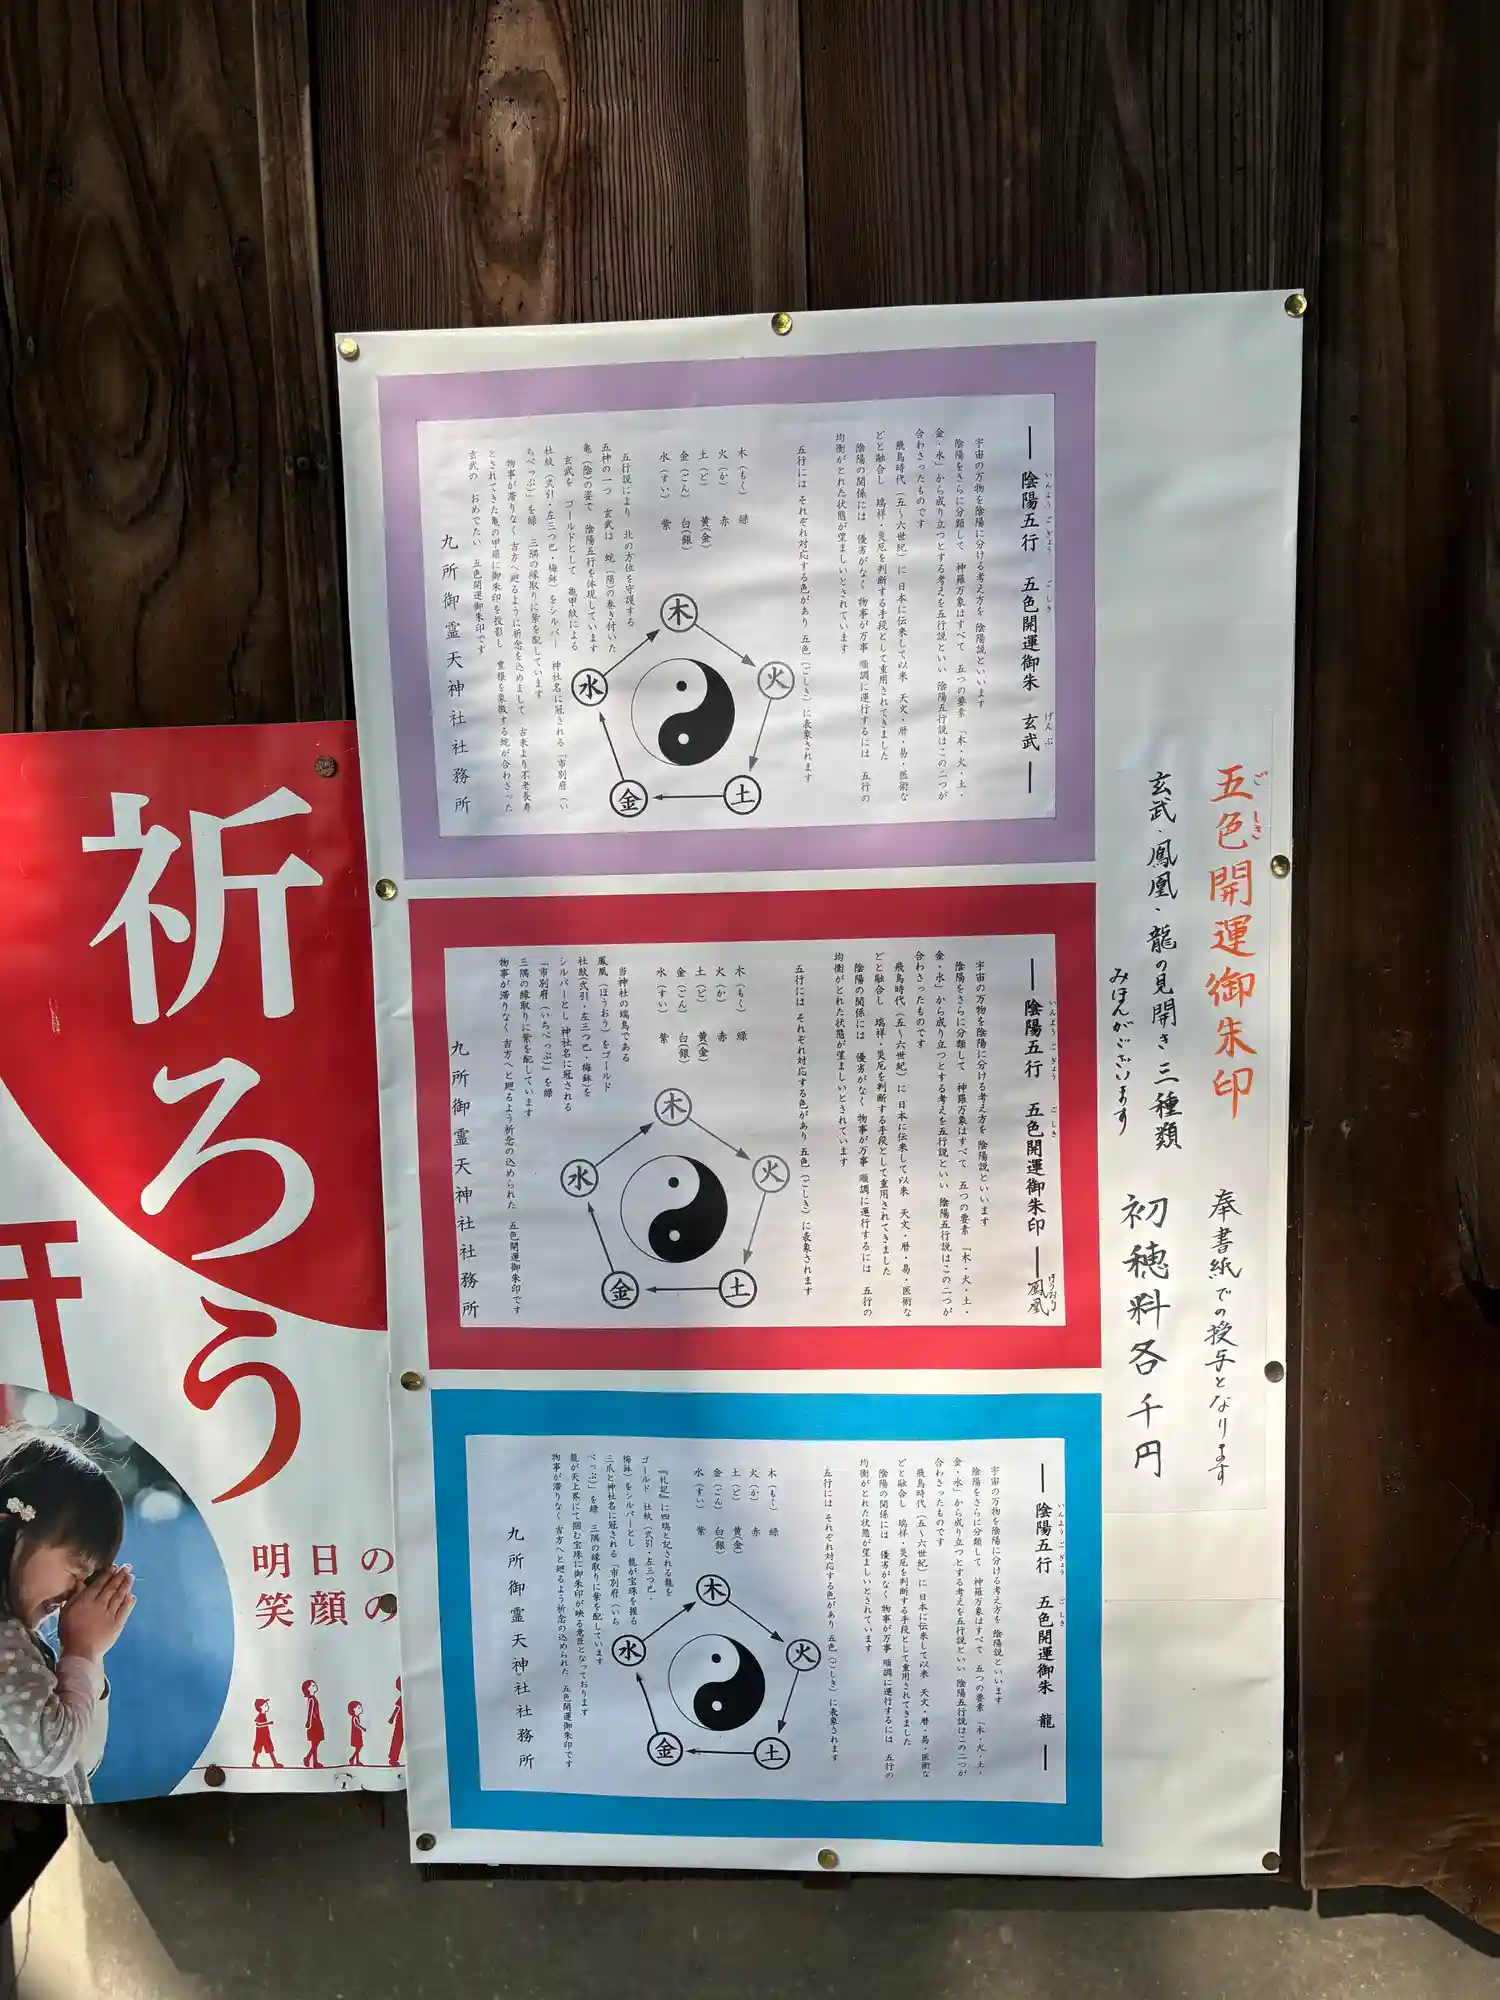 五色開運御朱印
ごしき
奉書紙での授与となります
玄武・鳳凰・龍の見開き三種類
みほんがございます
初穂料各千円
― 陰陽五行 五色開運御朱 玄武 ―
いんようごぎょう ごしき げんぶ
宇宙の万物を陰陽に分ける考え方を 陰陽説といいます
陰陽をさらに分類して 神羅万象はすべて 五つの要素 「木・火・土・
金・水」から成り立つとする考えを五行説といい 陰陽五行説はこの二つが
合わさったものです
飛鳥時代(五〜六世紀)に 日本に伝来して以来 天文・暦・易・医術な
どと融合し 瑞祥・災厄を判断する手段として重用されてきました
陰陽の関係には 優劣がなく 物事が万事 順調に運行するには 五行の
均衡がとれた状態が望ましいとされています
五行には それぞれ対応する色があり 五色(ごしき)に表象されます
木(もく) 緑
火(か) 赤
土(ど) 黄(金)
金(ごん) 白(銀)
水(すい) 紫
木
火
土
金
水
五行説により 北の方位を守護する
五神の一つ 玄武は 蛇(陽)の巻き付いた
亀(陰)の姿で 陰陽五行を体現しています
玄武を ゴールドとして 亀甲紋による
社紋(弐引・左三つ巴・梅鉢)をシルバー 神社名に冠される「市別府(い
ちべっぷ)」を緑 三隅の縁取りに紫を配しています
物事が滞りなく吉方へ廻るように祈念を込めまして 古来より不老長寿
とされてきた亀の甲羅に御朱印を投影し 豊穣を象徴する蛇が合わさった
玄武の おめでたい 五色開運御朱印です
九所御霊天神社社務所
― 陰陽五行 五色開運御朱印 ― 鳳凰
いんようごぎょう ごしき ほうおう
宇宙の万物を陰陽に分ける考え方を 陰陽説といいます
陰陽をさらに分類して 神羅万象はすべて 五つの要素 「木・火・土・
金・水」から成り立つとする考えを五行説といい 陰陽五行説はこの二つが
合わさったものです
飛鳥時代(五〜六世紀)に 日本に伝来して以来 天文・暦・易・医術な
どと融合し 瑞祥・災厄を判断する手段として重用されてきました
陰陽の関係には 優劣がなく 物事が万事 順調に運行するには 五行の
均衡がとれた状態が望ましいとされています
五行には それぞれ対応する色があり 五色(ごしき)に表象されます
木(もく) 緑
火(か) 赤
土(ど) 黄(金)
金(ごん) 白(銀)
水(すい) 紫
木
火
土
金
水
当神社の瑞鳥である
鳳凰(ほうおう)をゴールド
社紋(弐引・左三つ巴・梅鉢)を
シルバーとし 神社名に冠される
「市別府(いちべっぷ)」を緑
三隅の縁取りに紫を配しています
物事が滞りなく 吉方へと廻るよう祈念の込められた 五色開運御朱印です
九所御霊天神社社務所
― 陰陽五行 五色開運御朱 龍 ―
いんようごぎょう ごしき
宇宙の万物を陰陽に分ける考え方を 陰陽説といいます
陰陽をさらに分類して 神羅万象はすべて 五つの要素 「木・火・土・
金・水」から成り立つとする考えを五行説といい 陰陽五行説はこの二つが
合わさったものです
飛鳥時代(五〜六世紀)に 日本に伝来して以来 天文・暦・易・医術な
どと融合し 瑞祥・災厄を判断する手段として重用されてきました
陰陽の関係には 優劣がなく 物事が万事 順調に運行するには 五行の
均衡がとれた状態が望ましいとされています
五行には それぞれ対応する色があり 五色(ごしき)に表象されます
木(もく) 緑
火(か) 赤
土(ど) 黄(金)
金(ごん) 白(銀)
水(すい) 紫
木
火
土
金
水
『礼記』に四瑞と記される龍を
ゴールド 社紋(弐引・左三つ巴・
梅鉢)をシルバーとし 龍が宝珠を握る
三爪と神社名に冠される「市別府(いち
べっぷ)」を緑 三隅の縁取りに紫を配しています
龍が天上界にて掴む宝珠に御朱印が映る意匠となっております
物事が滞りなく 吉方へと廻るよう祈念の込められた 五色開運御朱印です
九所御霊天神社社務所
祈ろう
明日の
笑顔の